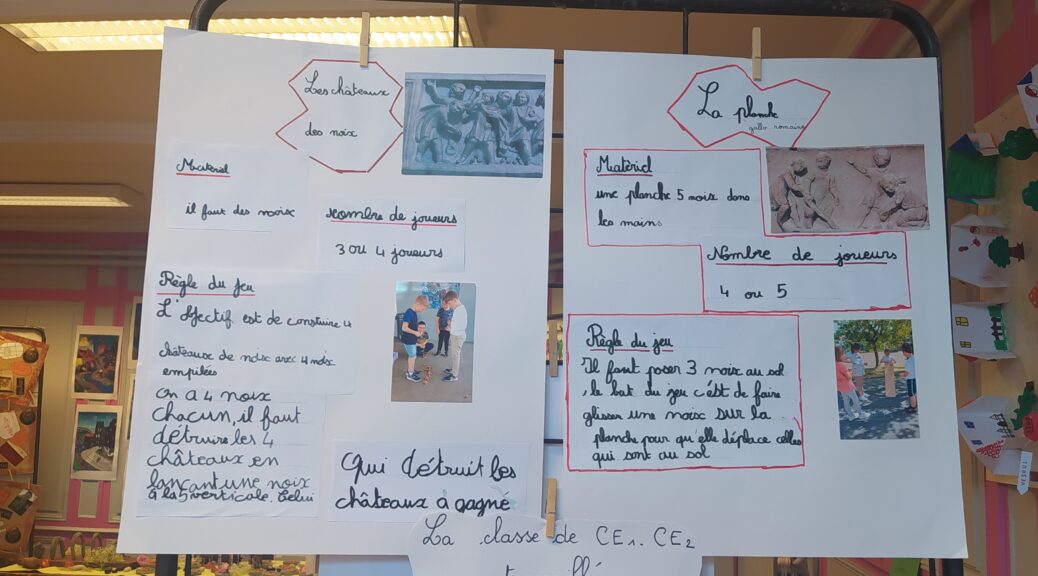 Les châteaux
des noix
Matériel
il faut des noix
Nombre de joueurs
3 ou 4 joueurs
Règle du jeu
L'objectif est de construire 4
châteaux de noix avec 4 noix
empilées
On a 4 noix
chacun, il faut
détruire les 4
châteaux en
lançant une noix
à la verticale. Celui
Qui détruit les
châteaux à gagné
La planche
gallo romaine
Matériel
une planche 5 noix dans
les mains
Nombre de joueurs
4 ou 5
Règle du jeu
Il faut poser 3 noix au sol
, le but du jeu c'est de faire
glisser une noix sur la
planche pour qu'elle déplace celles
qui sont au sol
La classe de CE1. CE2